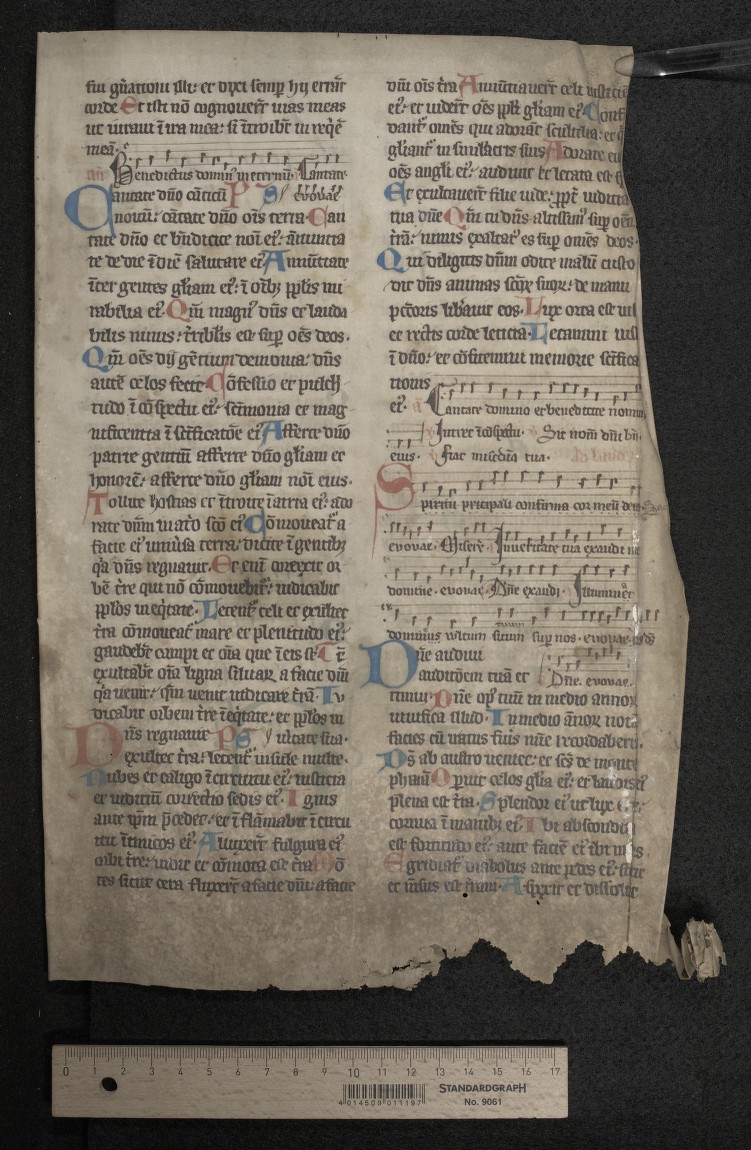 fui gn̄ationi illi: et dixi semp̱ hij errāt
corde Et isti nō cognouer̄t uias meas
ut iuraui ī ira mea: si ītroibt̄ in reqiē
meā.
an̄ Benedictus dominus in eternū. Cantate
antate dn̄o cāticū Ps evovae
nouū: cātate dn̄o oīs terra. Can
tate dn̄o et bn̄dicite noī ei⁹: ānuntia
te de die ī diē salutare ei⁹ Annūtiate
īter gentes gl̄iam ei⁹: ī oīb⁹ pplīs mi
rabilia ei⁹. Qm̄ magn⁹ dn̄s et lauda
bilis nimis: tr̄ibilis est sup̱ oēs deos.
Qm̄ oēs dij gētium demonia: dn̄s
autē celos fecit. Cōfessio et pulch
tudo ī cōspectu ei⁹: scīmonia et mag
nificentia ī scīficatōe ei⁹ Afferte dn̄o
patrie gentiū afferte dn̄o gl̄iam et
honorē: afferte dn̄o gl̄iam noī eius.
Tollite hostias et ītroite ī atria ei⁹: ado
rate dn̄m in atō scō ei⁹ Cōmoueat² a
facie ei⁹ uniūsa terra: dicite ī gentib⁹
q²a dn̄s regnauit. Et enī correxit or
bē tr̄e qui nō cōmouebit²: iudicabit
pplōs in eqitate. Letent² celi et exultet
tr̄a cōmoueat² mare et plenitudo ei⁹:
gaudebt̄ campi et oīa que ī eis st̄ Tc̄
exultabt̄ oīa ligna siluaꝝ a facie dn̄i
q²a uenit: qm̄ uenit iudicare tr̄ā. Iu
dicabit orbem tr̄e ī eqitate: et pplōs in
Dn̄s regnauit Ps uitate sua.
exultet tr̄a: letent² insule multe.
Nubes et caligo ī circuitu ei⁹: iusticia
et iudiciū correctio sedis ei⁹. Ignis
ante ip̄m p̄cedet: et ī flāmabit ī circu
itu īimicos ei⁹. Alluxer̄t fulgura ei⁹
orbi tr̄e: uidit et cōmota est tr̄a Mō
tes sicut cera fluxer̄t a facie dn̄i: a facie
dn̄i oīs tr̄a Annūtiauer̄t celi iusticiā
ei⁹: et uider̄t oēs pplī gl̄iam ei⁹. Conf
dant² omēs qui adorāt sculptilia: et q
gl̄iant² in simulacris suis Adorate eū
oēs angli ei⁹: audiuit et letata est
Et exultauer̄t filie iude: ppt̄ iudicia
tua dn̄e Qm̄ tu dn̄s altissim⁹ sup̱ oēm
tr̄ā: nimis exaltat⁹ es sup̱ omēs deos.
Qui diligitis dn̄m odite malū custo
dit dn̄s animas scōꝝ suoꝝ: de manu
pctōris lib̄auit eos. Lux orta est iust
et rectis corde leticia. Letamini iust
ī dn̄o: et cōfitemini memorie scīfica
tionis
ei⁹. Cantate domino et benedicite nomini
Intret ī cōspectu. Sit nom̄ dn̄i bn̄.
eius. Fiat misc̄dia tua.
Spiritu pricipali confirma cor meū deus
evovae. Misere. In ueritate tua exaudi me
domine. evovae. Dn̄e exaudi. Illuminet
dominus vultum suum sup̱ nos. evovae.
Dn̄e audiui
auditōem tuā et Dn̄e. evovae.
timui. Dn̄e op⁹ tuū in medio annoꝝ
uiuifica illud. In medio ānoꝝ notū
facies cū iratus fuis mīe recordaberis.
Ds̄ ab austro ueniet: et scs̄ de monte
pharā. Operuit celos gl̄ia ei⁹: et laudis ei⁹
plena est tr̄a. Splendor ei⁹ ut lux
cornua ī manib⁹ ei⁹. Ibi abscondita
est fortitudo ei⁹: ante faciē ei⁹ ibit mors
Egrediat² diabolus ante pedes ei⁹: stetit
et mēsus est tr̄am. Aspexit et dissoluit
0 1 2 3 4 5 6 7 8 9 10 11 12 13 14 15 16 17
4 014509 011197
STANDARDGRAPH
No. 9061